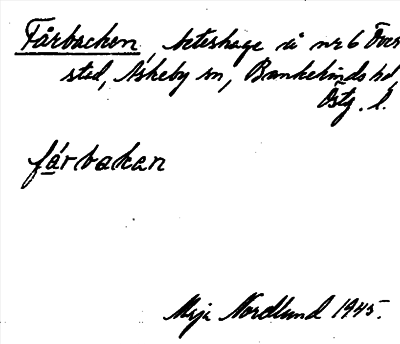 Fårbacken, beteshage å nr 6 Över
sted, Askeby sn, Bankekinds hd,
Östg. l.
fárbakan
Maja Nordlund 1945.